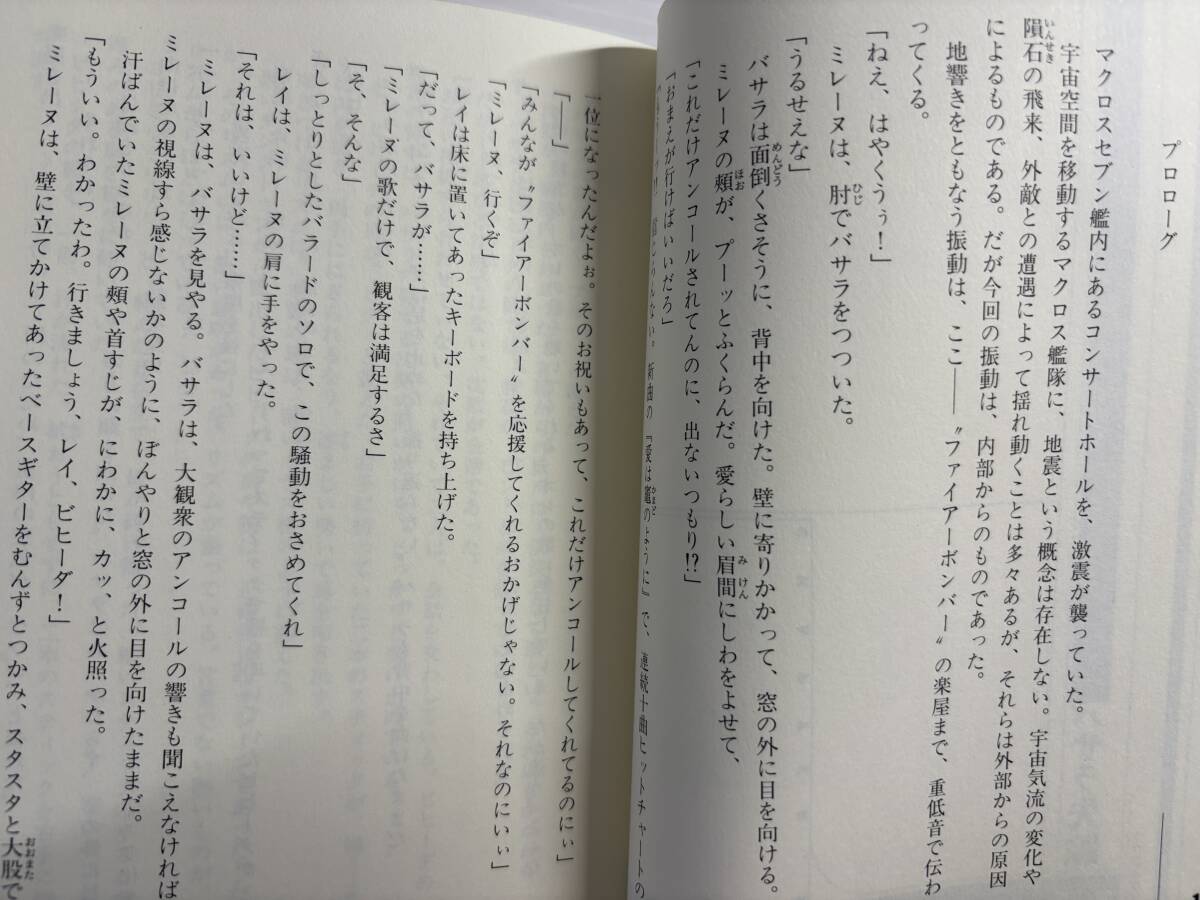 プロローグ
マクロスセブン艦内にあるコンサートホールを、激震が襲っていた。
宇宙空間を移動するマクロス艦隊に、地震という概念は存在しない。宇宙気流の変化や
隕石の飛来、外敵との遭遇によって揺れ動くことは多々あるが、それらは外部からの原因
によるものである。だが今回の振動は、内部からのものであった。
地響きをともなう振動は、ここ――〝ファイアーボンバー〟の楽屋まで、重低音で伝わ
ってくる。
「ねえ、はやくぅ！」
ミレーヌは、肘でバサラをつついた。
「うるせえな」
バサラは面倒くさそうに、背中を向けた。壁に寄りかかって、窓の外に目を向ける。
ミレーヌの頬が、プーッとふくらんだ。愛らしい眉間にしわをよせて、
「これだけアンコールされてんのに、出ないつもり!?」
「おまえが行けばいいだろ」
新曲の『愛は竈のように』で、連続十曲ヒットチャートの
一位になったんだよぉ。そのお祝いもあって、これだけアンコールしてくれてるのにぃ」
「――」
「みんなが〝ファイアーボンバー〟を応援してくれるおかげじゃない。それなのにいぃ」
「ミレーヌ、行くぞ」
レイは床に置いてあったキーボードを持ち上げた。
「だって、バサラが……」
「ミレーヌの歌だけで、観客は満足するさ」
「そ、そんな」
「しっとりとしたバラードのソロで、この騒動をおさめてくれ」
レイは、ミレーヌの肩に手をやった。
「それは、いいけど……」
ミレーヌは、バサラを見やる。バサラは、大観衆のアンコールの響きも聞こえなければ
ミレーヌの視線すら感じないかのように、ぼんやりと窓の外に目を向けたままだ。
汗ばんでいたミレーヌの頬や首すじが、にわかに、カッ、と火照った。
「もういい。わかったわ。行きましょう、レイ、ビヒーダ！」
ミレーヌは、壁に立てかけてあったベースギターをむんずとつかみ、スタスタと大股で